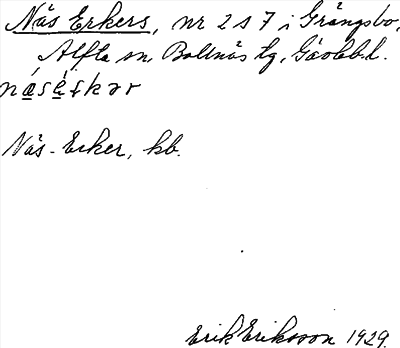 Näs Erkers, nr 2 s 7 i Grängsbo,
Alfta sn, Bollnäs tg, Gävleb.l.
Näs-Erker, kb.
Erik Eriksson 1929.